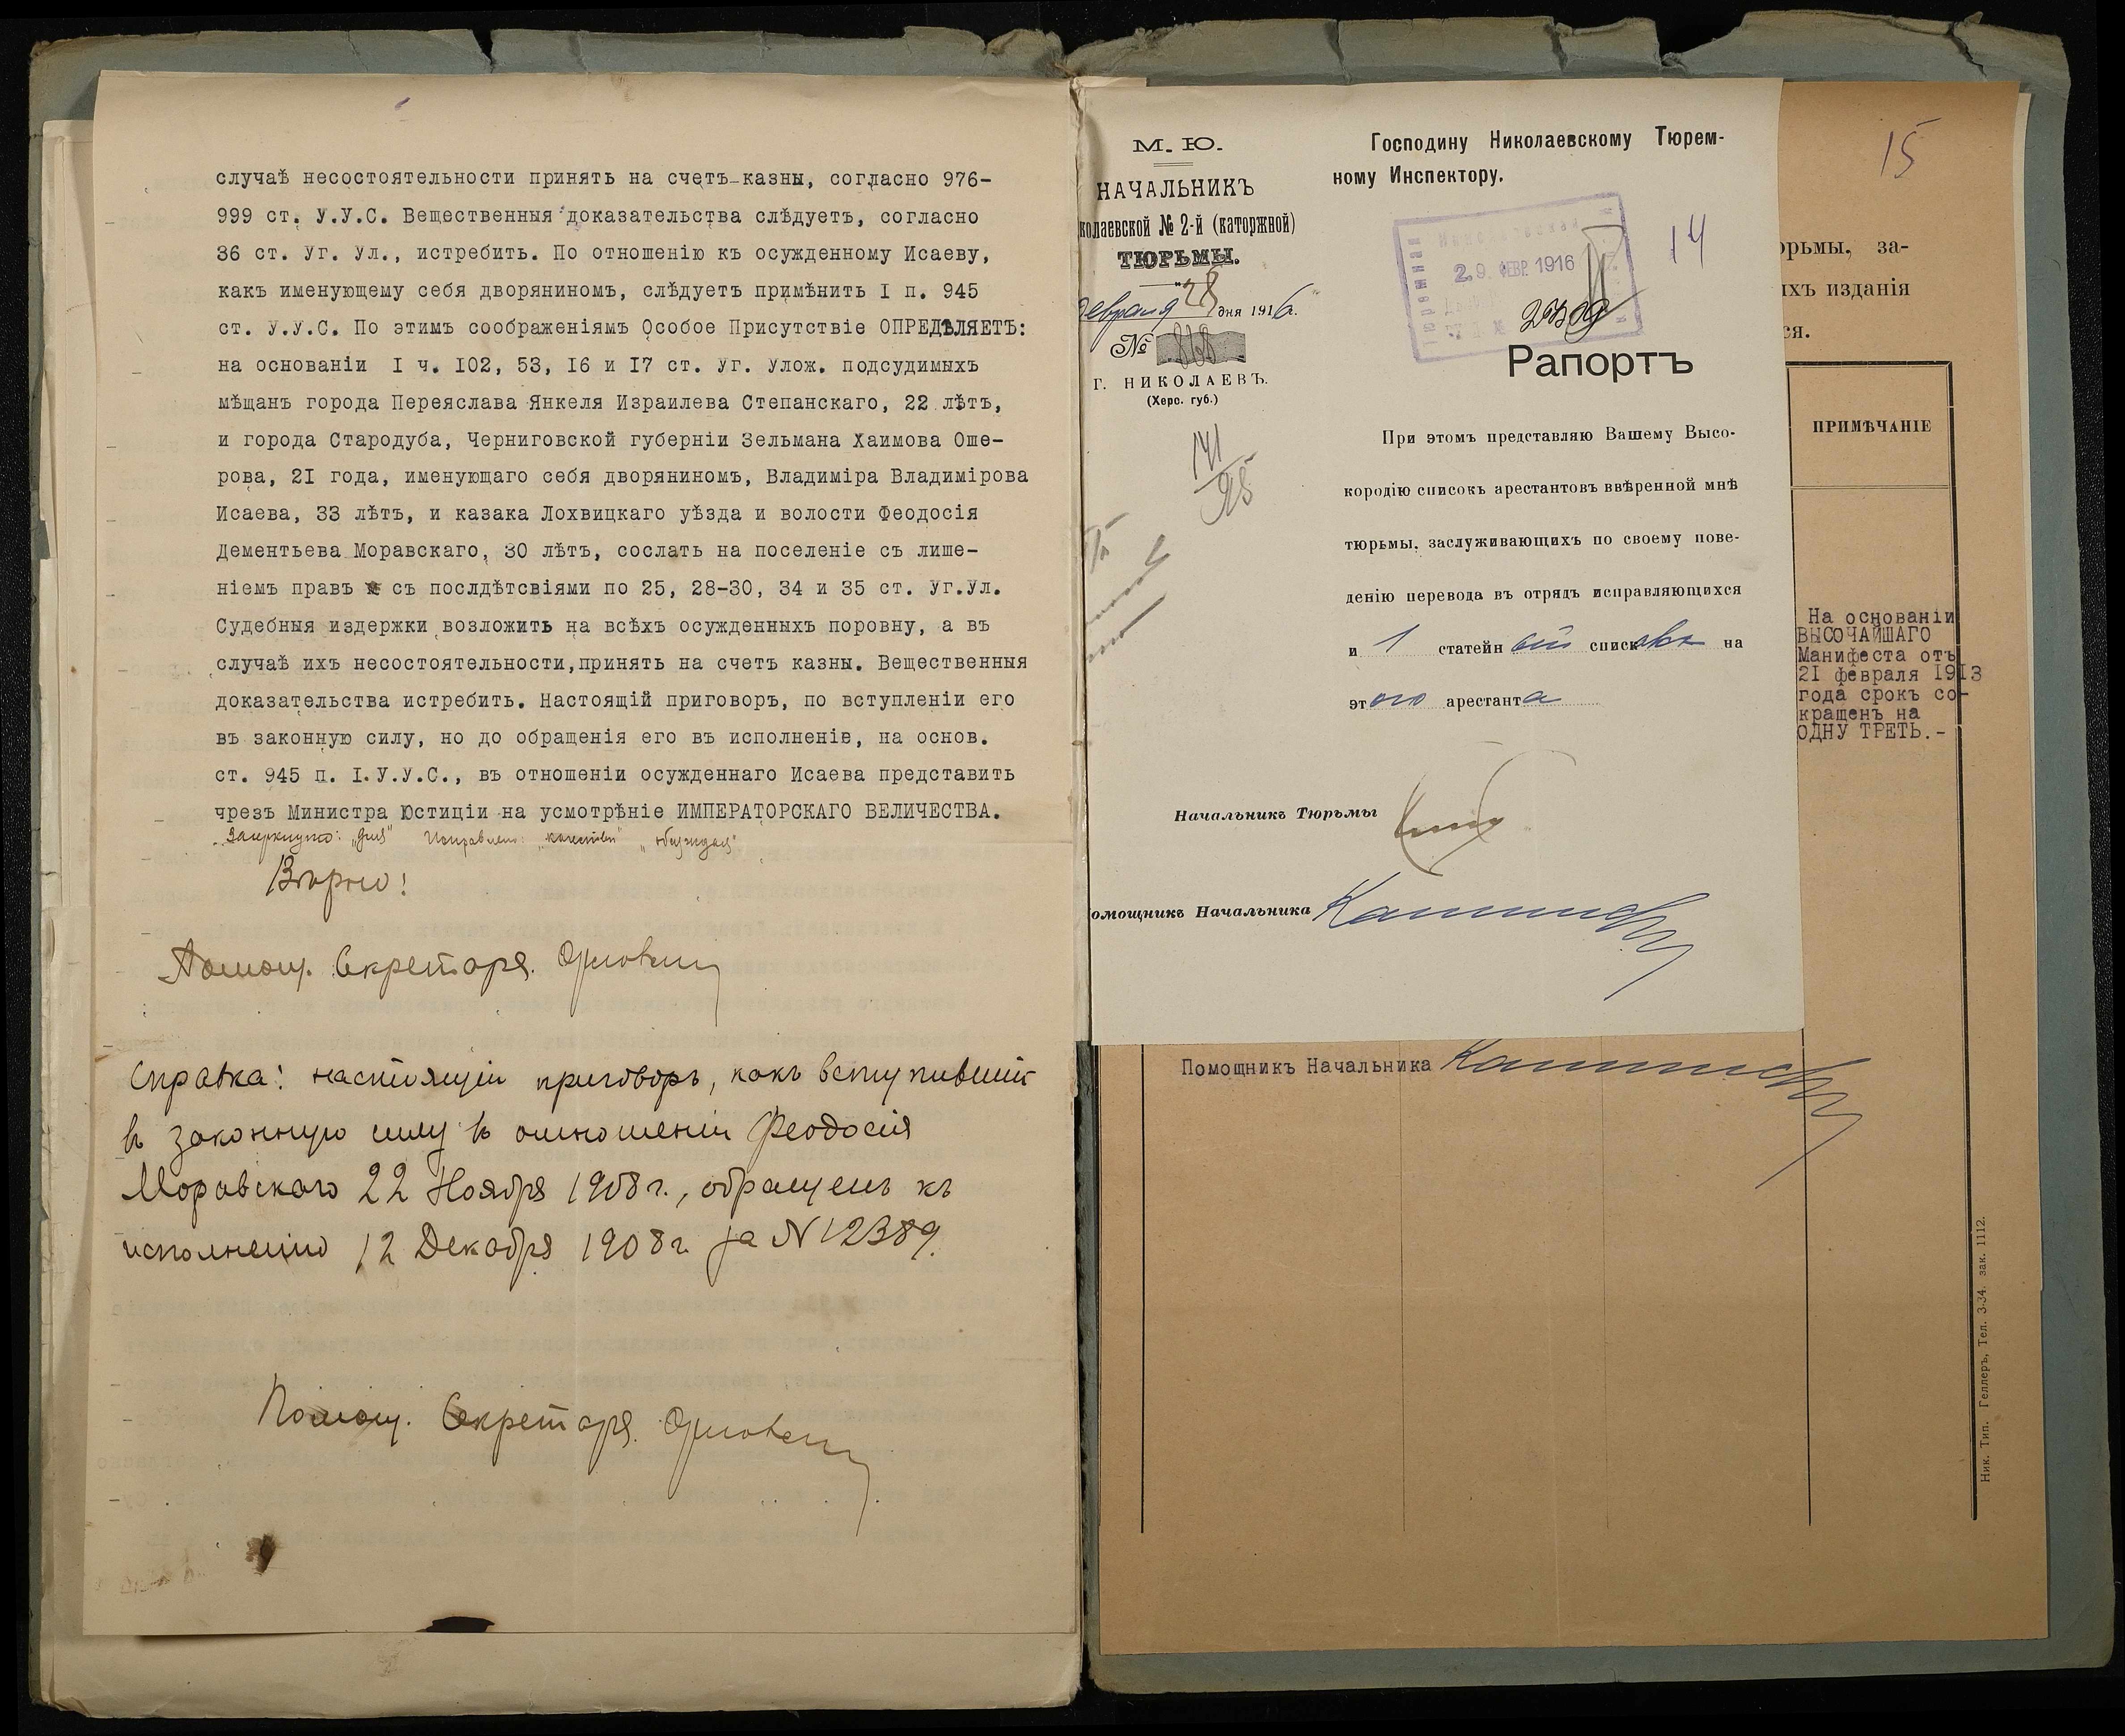 случаѣ несостоятельности принять на счетъ казны, согласно 976-
999 ст. У.У.С. Вещественныя доказательства слѣдуетъ, согласно
36 ст. Уг. Ул., истребить. По отношенію къ осужденному Исаеву,
какъ именующему себя дворяниномъ, слѣдуетъ примѣнить I п. 945
ст. У.У.С. По этимъ соображеніямъ Особое Присутствіе ОПРЕДѢЛЯЕТЪ:
на основаніи I ч. I02, 53, I6 и I7 ст. Уг. Улож. подсудимыхъ
мѣщанъ города Переяслава Янкеля Израилева Степанскаго, 22 лѣтъ,
и города Стародуба, Черниговской губерніи Зельмана Хаимова Оше-
рова, 2I года, именующаго себя дворяниномъ, Владиміра Владимірова
Исаева, 33 лѣтъ, и казака Лохвицкаго уѣзда и волости Феодосія
Дементьева Моравскаго, 30 лѣтъ, сослать на поселеніе съ лише-
ніемъ правъ съ послдѣтсвіями по 25, 28-30, 34 и 35 ст. Уг.Ул.
Судебныя издержки возложить на всѣхъ осужденныхъ поровну, а въ
случаѣ ихъ несостоятельности,принять на счетъ казны. Вещественныя
доказательства истребить. Настоящій приговоръ, по вступленіи его
въ законную силу, но до обращенія его въ исполненіе, на основ.
ст. 945 п. I.У.У.С., въ отношеніи осужденнаго Исаева представить
чрезъ Министра Юстиціи на усмотрѣніе ИМПЕРАТОРСКАГО ВЕЛИЧЕСТВА.
Зачеркнуто: Исправлено:
Вѣрно!
Помощ. Секретаря
Справка: настоящій приговоръ, какъ вступившій
въ законную силу въ отношеніи Феодосія
Моравскаго 22 Ноября 1908 г., обращенъ къ
исполненію 12 Декабря 1908 г. за N 12389.
Помощ. Секретаря
М. Ю.
НАЧАЛЬНИКЪ
колаевской № 2-й (каторжной)
ТЮРЬМЫ.
февраля 28 дня 1916 г.
№ 868
Г. НИКОЛАЕВЪ.
(Херс. губ.)
141
25
Господину Николаевскому Тюрем-
ному Инспектору.
29 ФЕВР. 1916
14
Рапортъ
При этомъ представляю Вашему Высо-
кородію списокъ арестантовъ ввѣренной мнѣ
тюрьмы, заслуживающихъ по своему пове-
денію перевода въ отрядъ исправляющихся
и 1 статейный списокъ на
этого арестанта
Начальникъ Тюрьмы
омощникъ Начальника
15
орьмы, за-
ихъ изданія
ся.
ПРИМѢЧАНІЕ
На основаніи
ВЫСОЧАЙШАГО
Манифеста отъ
2I февраля 19I3
года срокъ со-
кращенъ на
ОДНУ ТРЕТЬ.-
Помощникъ Начальника
Ник. Тип. Геллеръ, Тел. 3-34. зак. 1112.